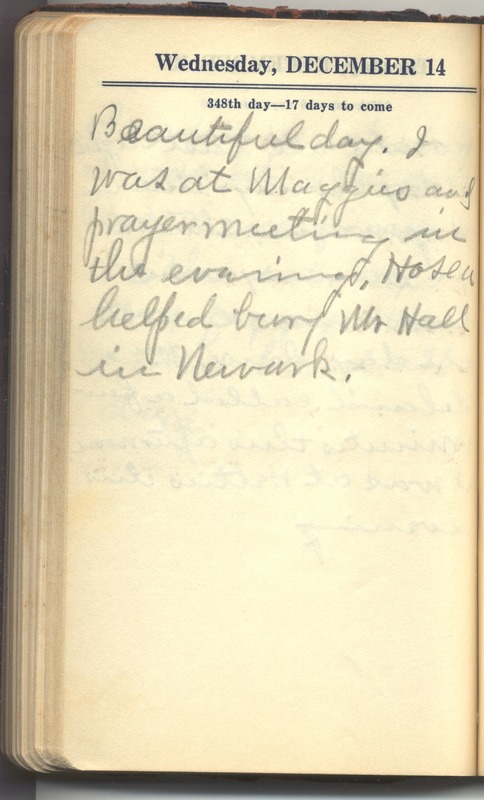 Wednesday, DECEMBER 14
348th day—17 days to come
Beautiful day. I
was at Maggies and
prayermeeting in
the evening, Hosea
helped bury Mr Hall
in Newark.